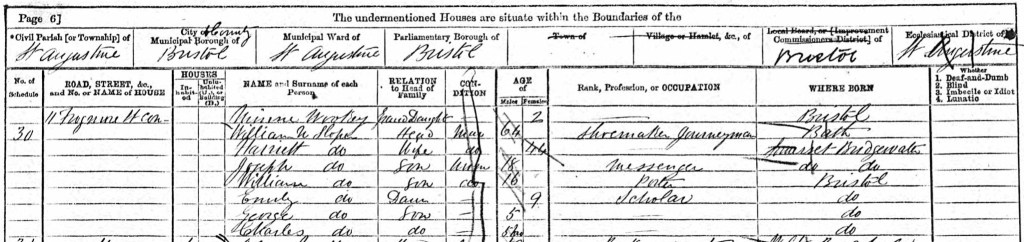 Page 6] The undermentioned Houses are situate within the Boundaries of the
*Civil Parish [or Township] of City & County Municipal Borough of Municipal Ward of Parliamentary Borough of Town of Village or Hamlet, &c., of Local Board, or [Improvement Commissioners District] of Ecclesiastical District of
St Augustine Bristol St Augustine Bristol Bristol St Augustine
No. of Schedule ROAD, STREET, &c., and No. or NAME of HOUSE HOUSES Inhabited Uninhabited (U.), or Building (B.) NAME and Surname of each Person RELATION to Head of Family CONDITION AGE of Males Females Rank, Profession, or OCCUPATION WHERE BORN Whether 1. Deaf-and-Dumb 2. Blind 3. Imbecile or Idiot 4. Lunatic
11 Frogmore St Con- Grand Daught 2 Bristol
30 William Head Mar 64 Shoemaker Journeyman Bath
Harriett do Wife do Somerset Bridgewater
Joseph do Son 18 Messenger do do
William do Son do 16 Porter Bristol
Emily do Daur 9 Scholar do
George do Son 5 do
Charles do do do